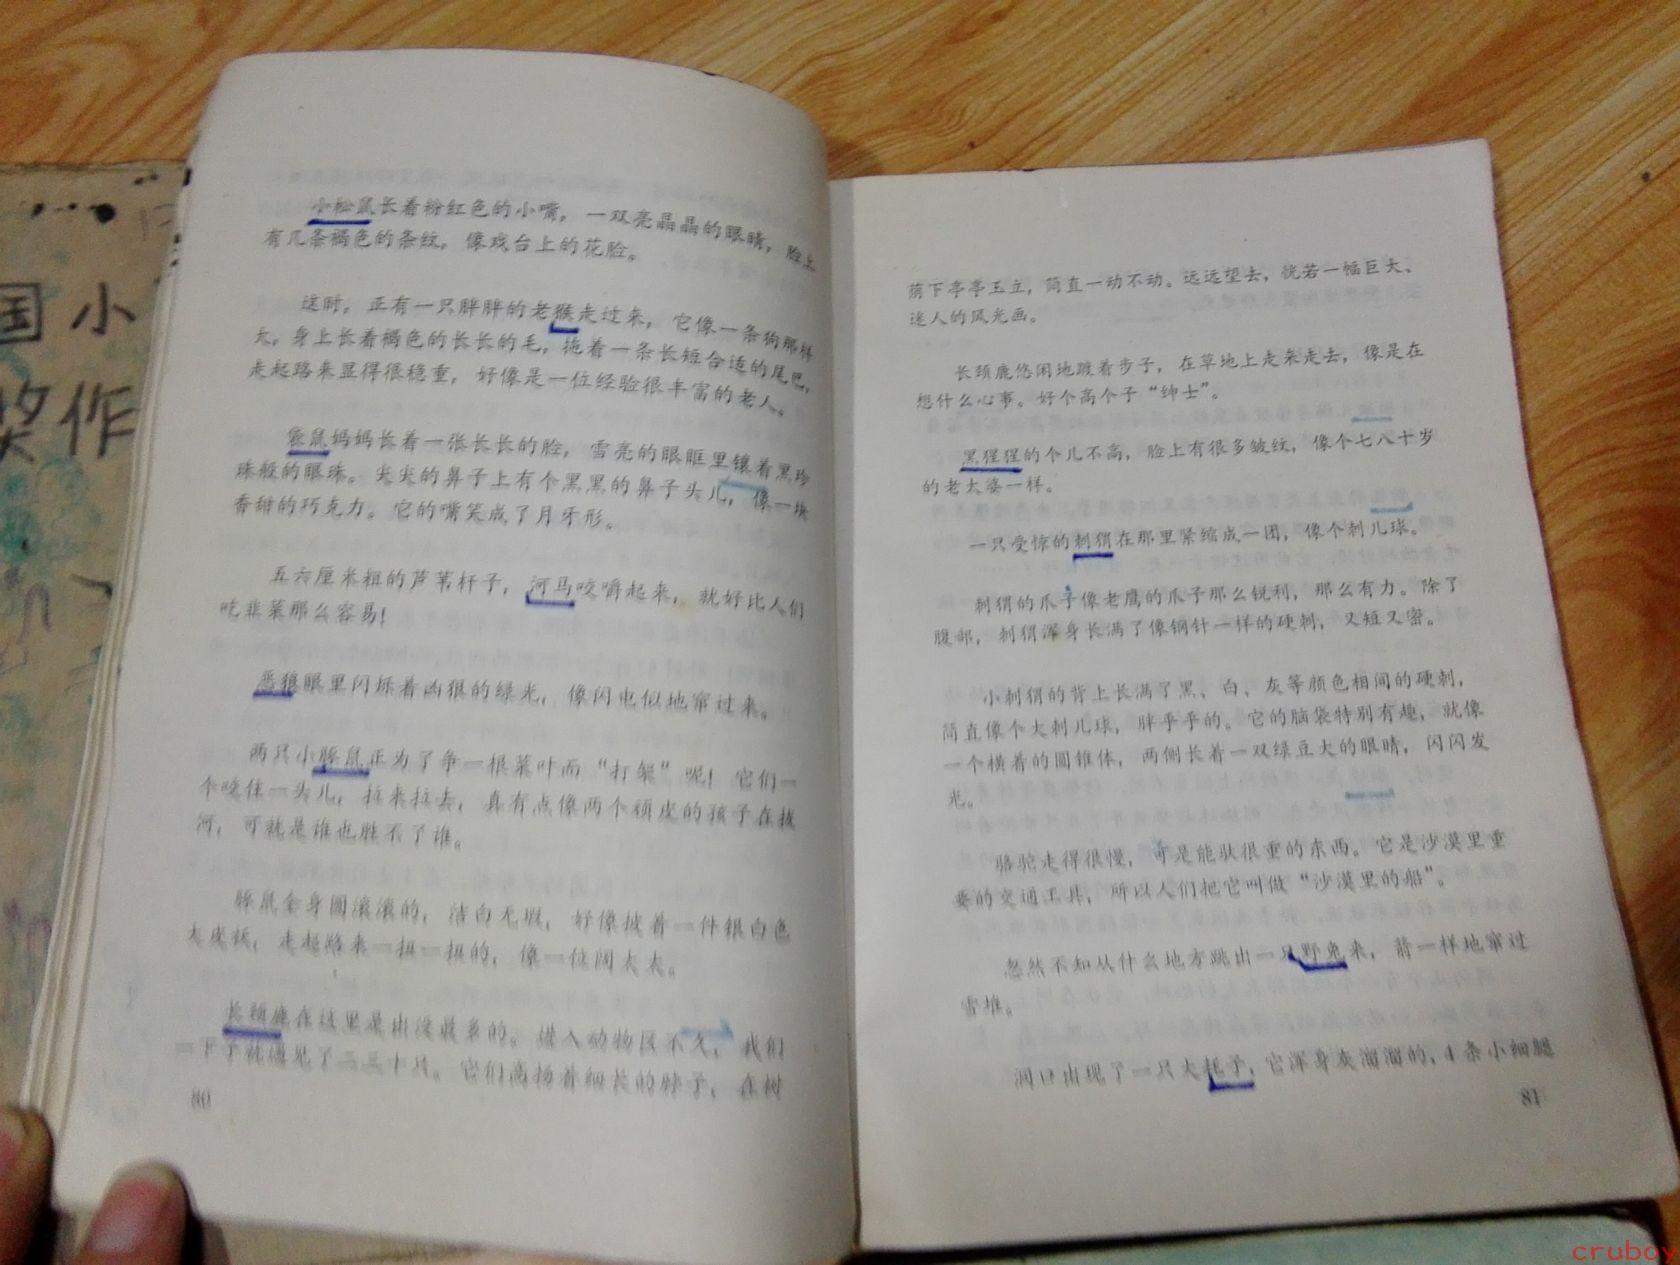 国小
奖作
小松鼠长着粉红色的小嘴，一双亮晶晶的眼睛，脸上
有几条褐色的条纹，像戏台上的花脸。
这时，正有一只胖胖的老猴走过来，它像一条狗那样
大，身上长着褐色的长长的毛，拖着一条长短合适的尾巴，
走起路来显得很稳重，好像是一位经验很丰富的老人。
袋鼠妈妈长着一张长长的脸，雪亮的眼眶里镶着黑珍
珠般的眼珠。尖尖的鼻子上有个黑黑的鼻子头儿，像一块
香甜的巧克力。它的嘴笑成了月牙形。
五六厘米粗的芦苇杆子，河马咬嚼起来，就好比人们
吃韭菜那么容易！
恶狼眼里闪烁着凶狠的绿光，像闪电似地窜过来。
两只小豚鼠正为了争一根菜叶而“打架”呢！它们一
个咬住一头儿，拉来拉去，真有点像两个顽皮的孩子在拔
河，可就是谁也胜不了谁。
豚鼠全身圆滚滚的，洁白无瑕，好像披着一件银白色
大皮袄，走起路来一扭一扭的，像一位阔太太。
长颈鹿在这里是出没最多的。进入动物区不久，我们
一下子就遇见了二三十只。它们高扬着细长的脖子，在树
80
荫下亭亭玉立，简直一动不动。远远望去，恍若一幅巨大、
迷人的风光画。
长颈鹿悠闲地踱着步子，在草地上走来走去，像是在
想什么心事。好个高个子“绅士”。
黑猩猩的个儿不高，脸上有很多皱纹，像个七八十岁
的老太婆一样。
一只受惊的刺猬在那里紧缩成一团，像个刺儿球。
刺猬的爪子像老鹰的爪子那么锐利，那么有力。除了
腹部，刺猬浑身长满了像钢针一样的硬刺，又短又密。
小刺猬的背上长满了黑、白、灰等颜色相间的硬刺，
简直像个大刺儿球，胖乎乎的。它的脑袋特别有趣，就像
一个横着的圆锥体，两侧长着一双绿豆大的眼睛，闪闪发
光。
骆驼走得很慢，可是能驮很重的东西。它是沙漠里重
要的交通工具，所以人们把它叫做“沙漠里的船”。
忽然不知从什么地方跳出一只野兔来，箭一样地窜过
雪堆。
洞口出现了一只大耗子，它浑身灰溜溜的，4条小细腿
81
cruboy